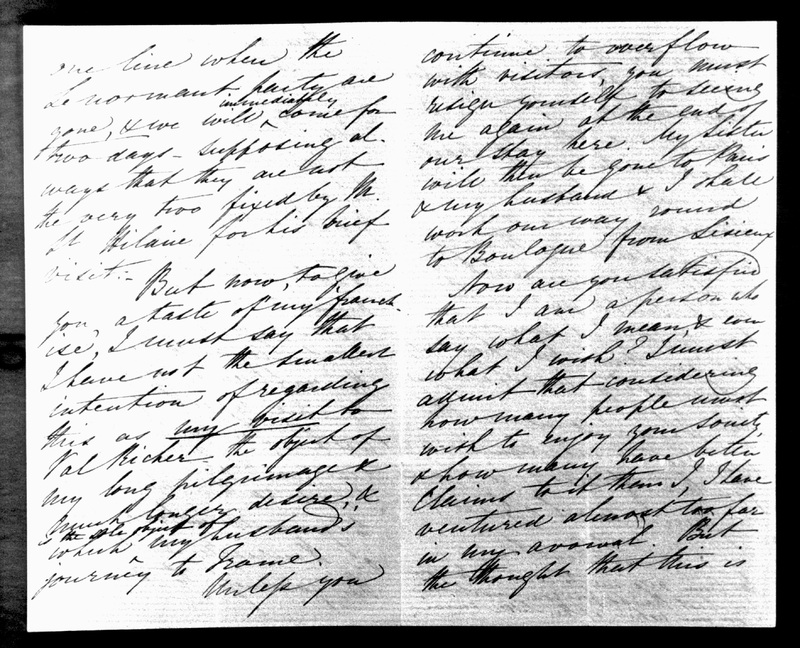 one line when the
Lenormant party are
gone, & we will immediately come for
two days - supposing al-
ways that they are not
the very two fixed by M.
St Hilaire for his brief
visit. -
But now, to give
you a taste of my franch-
ise, I must say that
I have not the smallest
intention of regarding
this as my visit to
Val Richer the object of
my long pilgrimage &
much longer desire, &
& the sole object of
which my husband's
journey to France.
Unless you
continue to overflow
with visitors, you must
resign yourself to seeing
me again at the end of
our stay here. My Sister
will then be gone to Paris
& my husband & I shall
work our way round
to Boulogne from Lisieux
Now are you satisfied
that I am a person who
say what I mean & even
what I wish? I must
admit that considering
how many people must
wish to enjoy your society,
& how many have better
claims to it than I, I have
ventured almost too far
in my avowal. But
the thought that this is